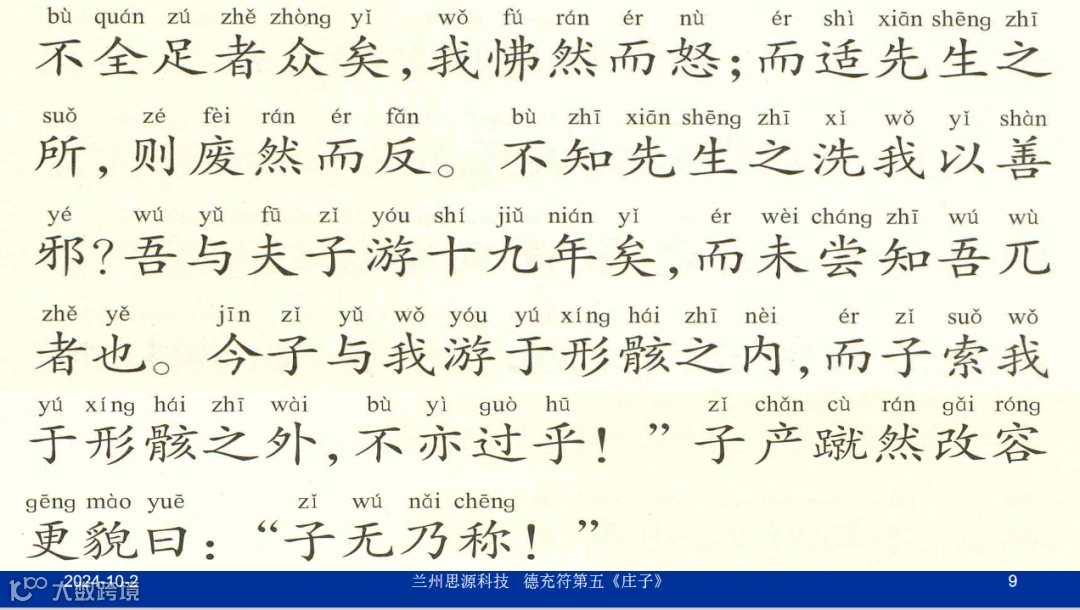 bù quán zú zhě zhòng yǐ wǒ fú rán ér nù ér shì xiān shēng zhī
不全足者众矣，我怫然而怒；而适先生之
suǒ zé fèi rán ér fǎn bù zhī xiān shēng zhī xǐ wǒ yǐ shàn
所，则废然而反。不知先生之洗我以善
yé wú yǔ fū zǐ yóu shí jiǔ nián yǐ ér wèi cháng zhī wú wù
邪？吾与夫子游十九年矣，而未尝知吾兀
zhě yě jīn zǐ yǔ wǒ yóu yú xíng hái zhī nèi ér zǐ suǒ wǒ
者也。今子与我游于形骸之内，而子索我
yú xíng hái zhī wài bù yì guò hū zǐ chǎn cù rán gǎi róng
于形骸之外，不亦过乎！”子产蹴然改容
gēng mào yuē zǐ wú nǎi chēng
更貌曰：“子无乃称！”
2024-10-2 兰州思源科技 德充符第五《庄子》 9
大数跨境